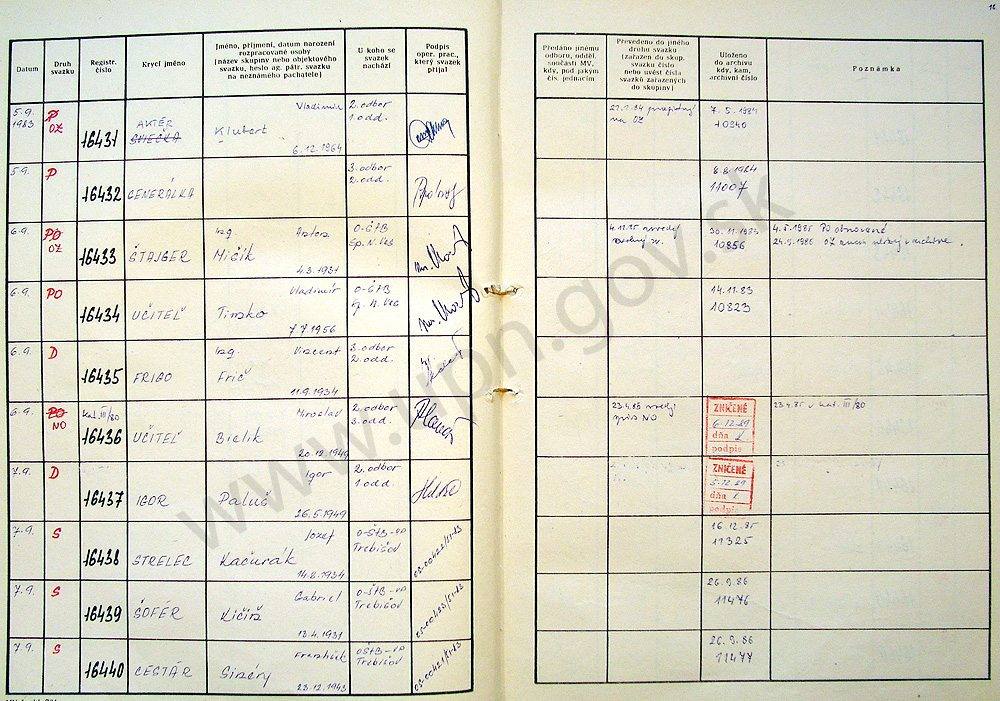 12
Datum
Druh svazku
Registr. číslo
Krycí jméno
Jméno, příjmení, datum narození
rozpracované osoby
(název skupiny nebo objektového
svazku, heslo ag. pátr. svazku
na neznámého pachatele)
U koho se
svazek
nachází
Podpis
oper. prac.,
který svazek
přijal
Předáno jinému
odboru, odděl.
součásti MV,
kdy, pod jakým
čís. jednacím
Převedeno do jiného
druhu svazku
(zařazen do skup.
svazku číslo
nebo uvést čísla
svazků zařazených
do skupiny)
Uloženo
do archivu
kdy, kam,
archivní číslo
Poznámka
5.9. 1983
P
OZ
16431
AKTÉR
Vladimír
Klubert
6.12.1964
2. odbor
1. odd.
na OZ
7.5.1984
10940
5.9.
P
16432
GENERÁLKA
3. odbor
2. odd.
8.8.1984
11007
6.9.
PO
OZ
16433
ŠTAJGER
Ing.
Mičík
4.3.1931
O-ŠTB
Sp. N. Ves
30.11.1984
10856
4.5.1985 PO obnovené
6.9.
PO
16434
UČITEĽ
Vladimír
Timko
7.7.1956
O-ŠTB
Sp. N. Ves
14.11.83
10823
6.9.
D
16435
FRIGO
Ing. Vincent
Frič
11.9.1934
3. odbor
2. odd.
6.9.
PO
NO
kat. III/80
16436
UČITEĽ
Miroslav
Bielik
20.12.1949
2. odbor
3. odd.
23.4.85
spis NO
ZNIČENÉ
6.12.89
dňa
podpis
23.4.85 v kat. III/80
7.9.
D
16437
IGOR
Igor
Paluč
26.5.1949
2. odbor
1. odd.
ZNIČENÉ
5.12.89
dňa
podpis
7.9.
S
16438
STRELEC
Jozef
Kačurák
14.8.1934
O-ŠTB-VP
Trebišov
16.12.85
11325
7.9.
S
16439
ŠOFÉR
Gabriel
Kičiň
13.4.1931
O-ŠTB-VP
Trebišov
26.9.86
11476
7.9.
S
16440
CESTÁR
František
Sirény
23.12.1943
OŠTB-VP
Trebišov
26.9.86
11477
www.upn.gov.sk